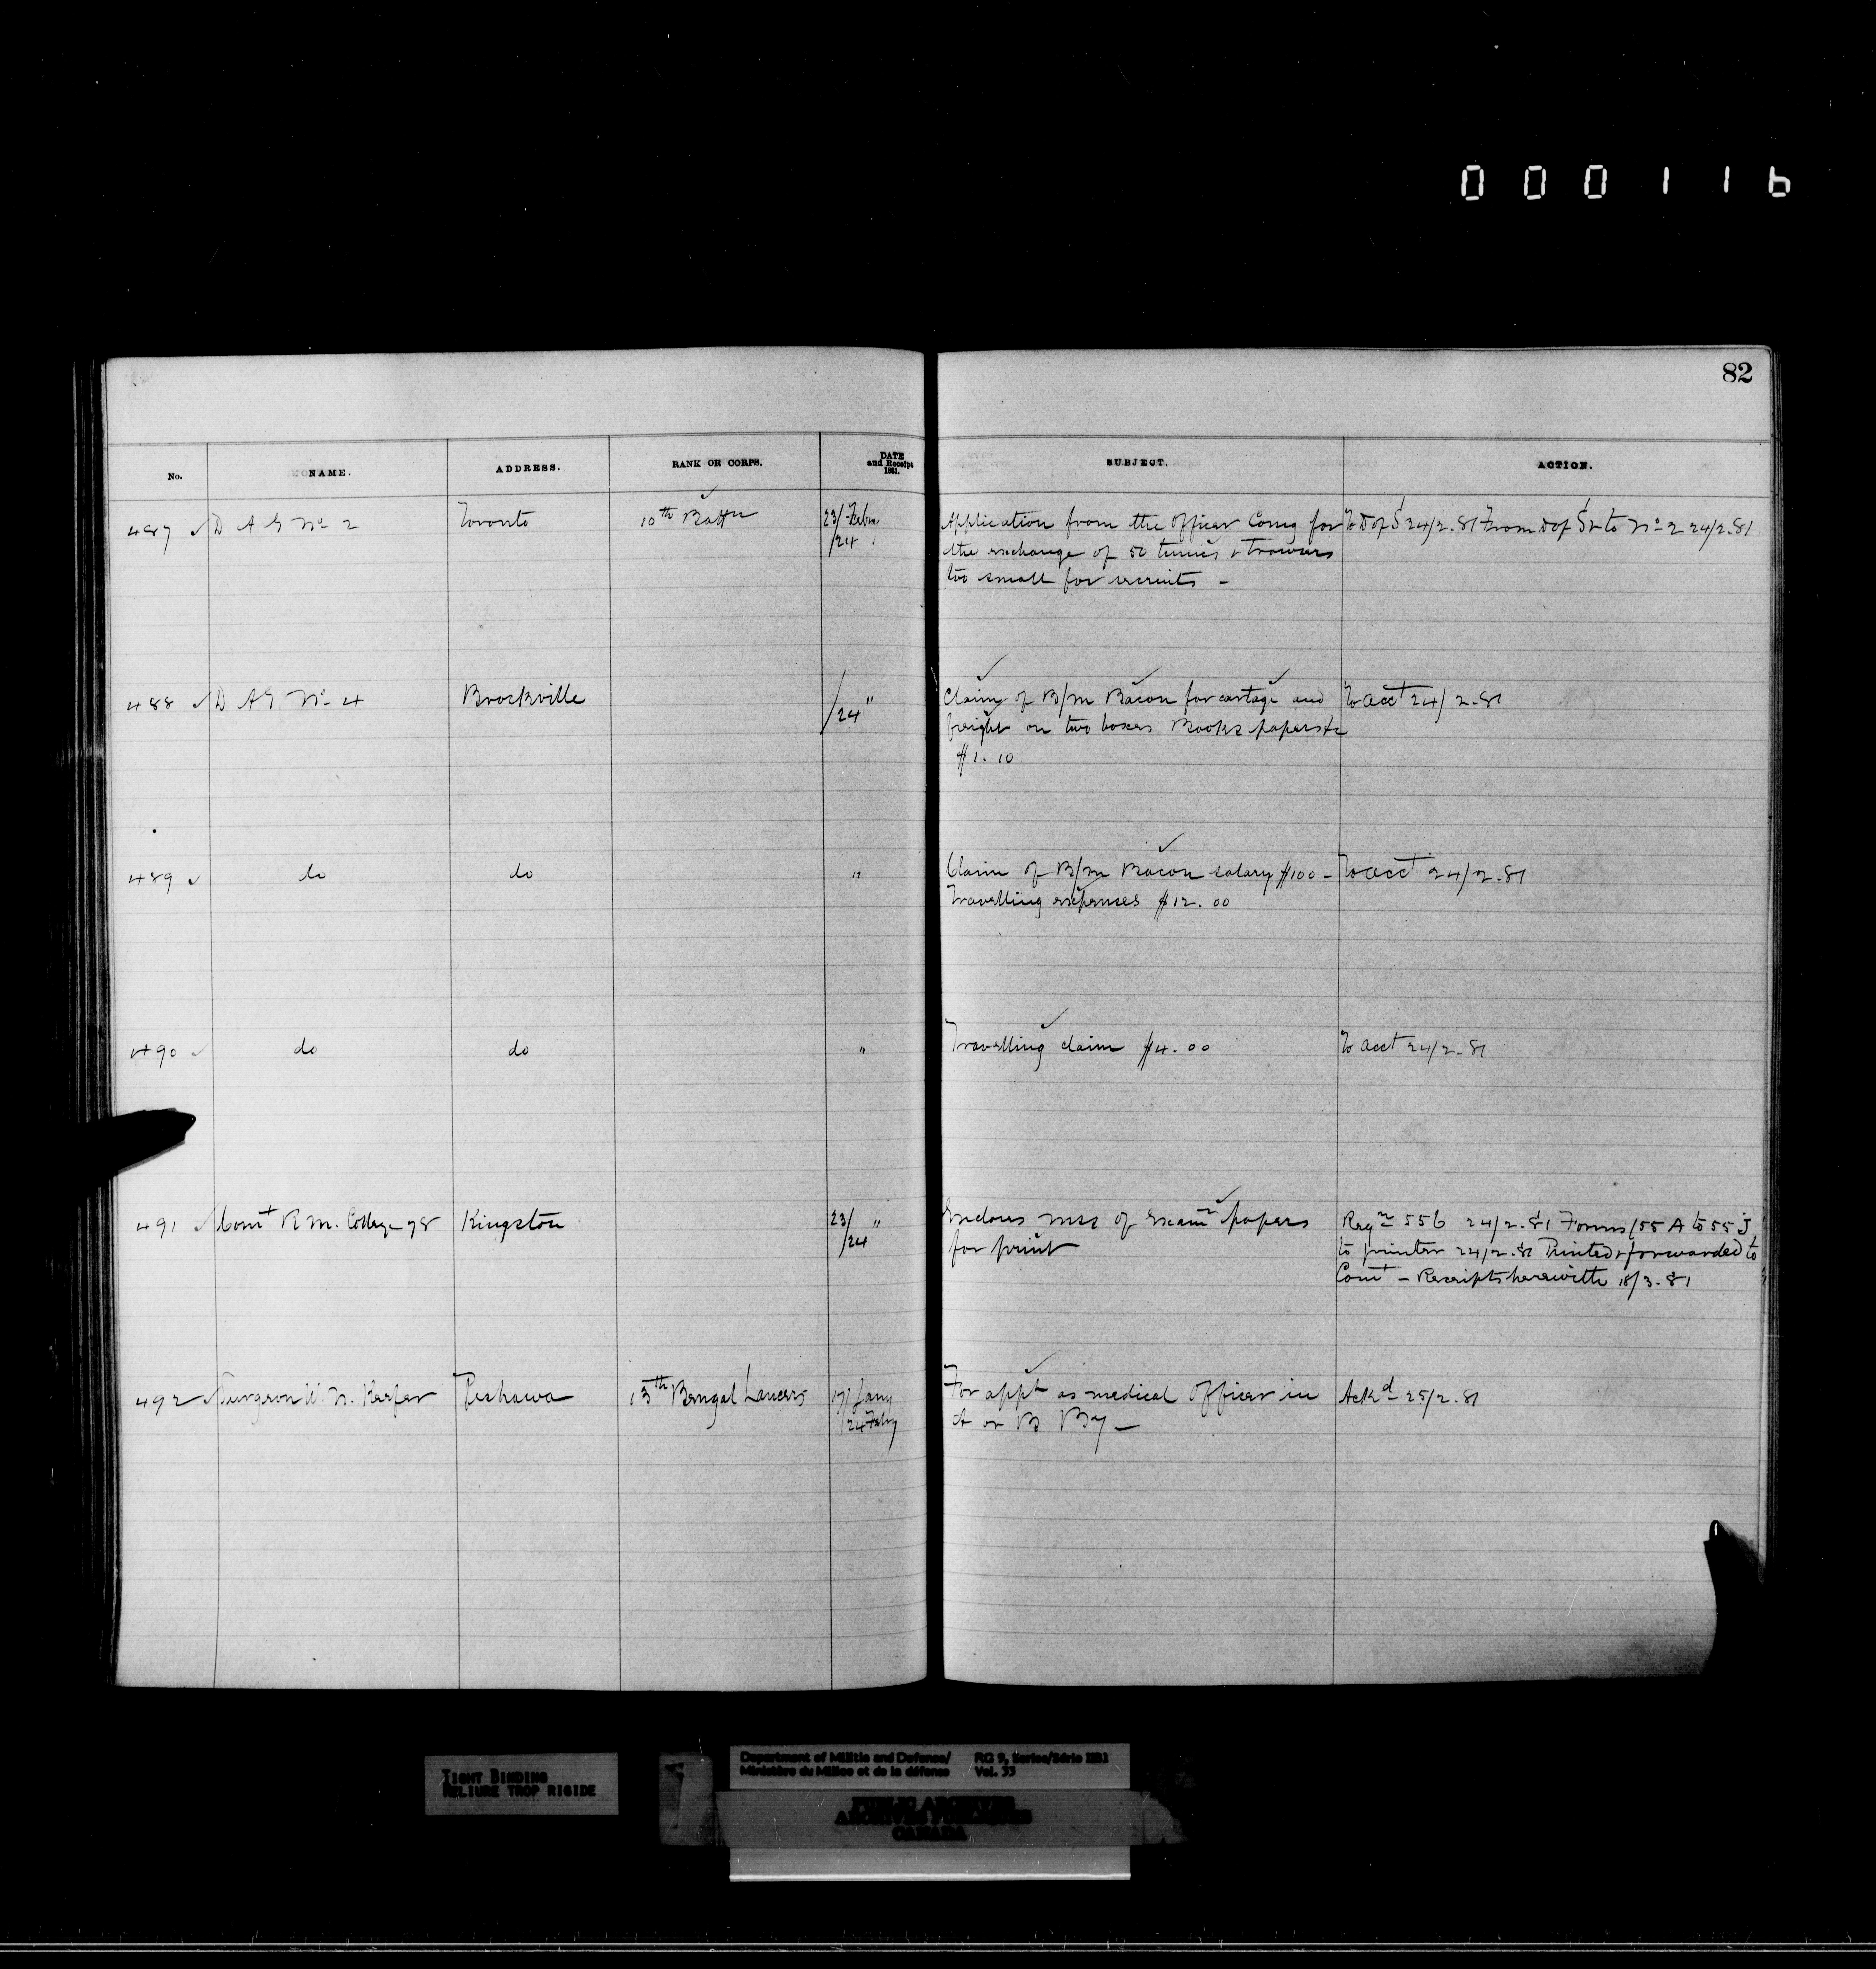 000116
82
No. NAME. ADDRESS. RANK OR CORPS. DATE and Receipt 1881. SUBJECT. ACTION.
487 ✓ D A G No 2 Toronto 10th Battn 23/ Febry /24 Application from the Officer Comg for To D of S 24/2.81 From D of S & to No 2 24/2.81
the exchange of 50 tunics & Trowsers
too small for recruits -
488 ✓ D A G No 4 Brockville /24 " Claim of B/m Bacon for cartage and To acct 24/2.81
freight on two boxes Books papers &c
$1.10
489 ✓ do do " Claim of B/m Bacon salary $100 - To acct 24/2.81
Travelling expenses $12.00
490 ✓ do do " Travelling claim $4.00 To acct 24/2.81
491 ✓ Comt R. M. College 98 Kingston 23/ " /24 Encloses mss of Examn papers Reqn 556 24/2.81 Forms (55 A to 55 J
for print to printer 24/2.81 Printed & forwarded to
Comt - Receipts herewith 18/3.81
492 ✓ Surgeon W. N. Keefer Peshawa 13th Bengal Lancers 17/ Jany /24 Febry For appt as medical Officer in Ackd 25/2.81
A or B By -
TIGHT BINDING
RELIURE TROP RIGIDE
Department of Militia and Defence/ RG 9, Series/Série IIB1
Ministère du Milice et de la défense Vol. 33
PUBLIC ARCHIVES
ARCHIVES PUBLIQUES
CANADA